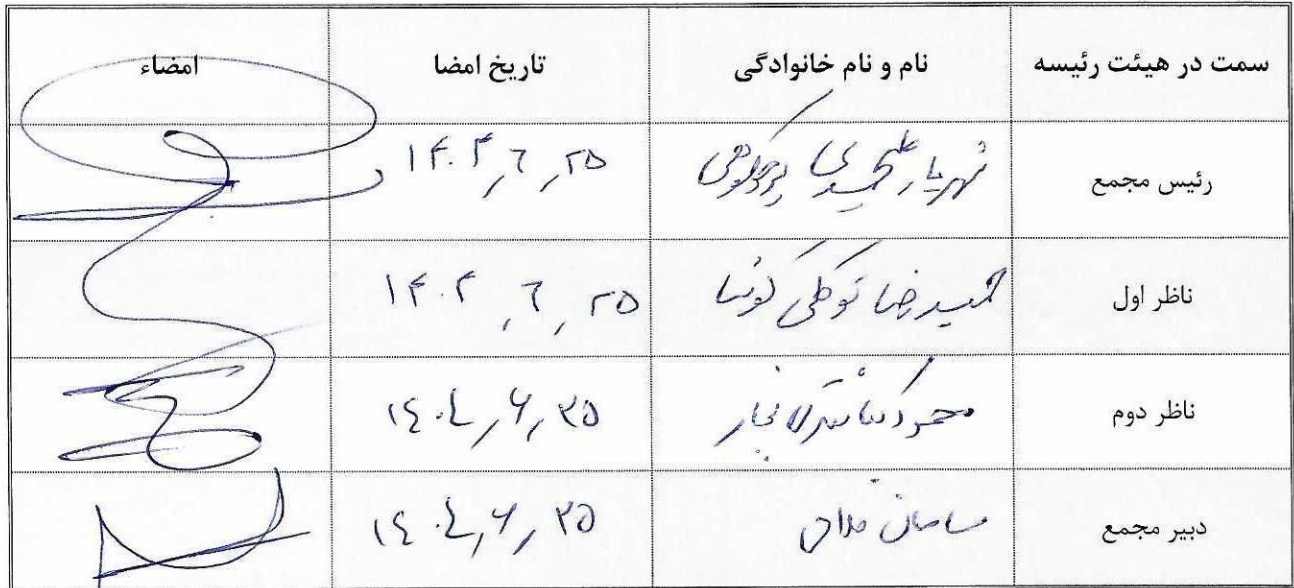 سمت در هیئت رئیسه نام و نام خانوادگی تاریخ امضا امضاء
رئیس مجمع شهریار ۱۴۰۴,۶,۲۵
ناظر اول حمیدرضا توکلی ۱۴۰۴,۶,۲۵
ناظر دوم محمود ۱۴۰۴,۶,۲۵
دبیر مجمع سامان ۱۴۰۴,۶,۲۵